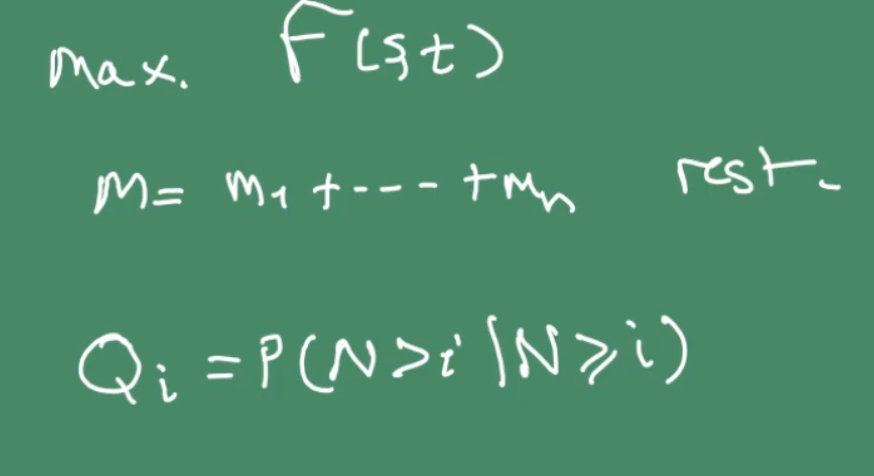 max. F(ξ,t)
M = m₁ + --- + Mₙ rest.
Qᵢ = P(N > i | N ⩾ i)